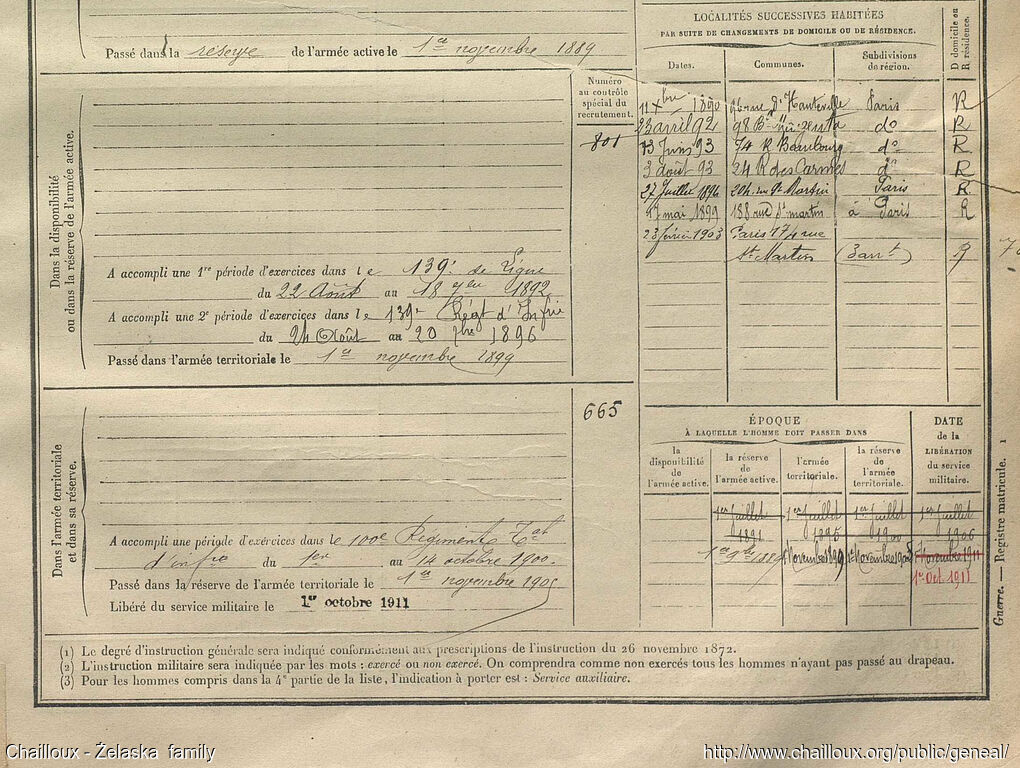 Passé dans la réserve de l'armée active le 1er novembre 1889
Dans la disponibilité
ou dans la réserve de l'armée active.
Numéro
au contrôle
spécial du
recrutement.
801
A accompli une 1re période d'exercices dans le 139e de Ligne
du 22 Août au 18 7bre 1892
A accompli une 2e période d'exercices dans le 139e Régt d'Infrie
du 24 Août au 20 7bre 1896
Passé dans l'armée territoriale le 1er novembre 1899
Dans l'armée territoriale
et dans sa réserve.
665
A accompli une période d'exercices dans le 100e Régiment Tal
d'infie du 1er au 14 octobre 1900.
Passé dans la réserve de l'armée territoriale le 1er novembre 1905
Libéré du service militaire le 1er octobre 1911
LOCALITÉS SUCCESSIVES HABITÉES
PAR SUITE DE CHANGEMENTS DE DOMICILE OU DE RÉSIDENCE.
Dates. Communes. Subdivisions
de région.
D domicile ou
R résidence.
11 Xbre 1890 96 rue d'Hauteville Paris R
23 avril 92 98 Bd Magenta do R
13 Juin 93 74 R Beaubourg do R
3 août 93 24 R des Carmes do R
27 Juillet 1896 204 rue St Martin Paris R
17 mai 1899 188 rue St martin à Paris R
23 février 1903 Paris 174 rue
St Martin (3 arrt) R
ÉPOQUE
À LAQUELLE L'HOMME DOIT PASSER DANS
la
disponibilité
de
l'armée active.
la réserve
de
l'armée active.
l'armée
territoriale.
la réserve
de
l'armée
territoriale.
DATE
de la
LIBÉRATION
du service
militaire.
1er Juillet 1er Juillet 1er Juillet 1er Juillet
1891 1895 1900 1906
1er 9bre 1889 1 Novembre 1899 1 Novembre 1905 1 Novembre 1911
1er Oct 1911
Guerre. — Registre matricule. 1
(1) Le degré d'instruction générale sera indiqué conformément aux prescriptions de l'instruction du 26 novembre 1872.
(2) L'instruction militaire sera indiquée par les mots : exercé ou non exercé. On comprendra comme non exercés tous les hommes n'ayant pas passé au drapeau.
(3) Pour les hommes compris dans la 4e partie de la liste, l'indication à porter est : Service auxiliaire.
Chailloux - Żelaska family
http://www.chailloux.org/public/geneal/